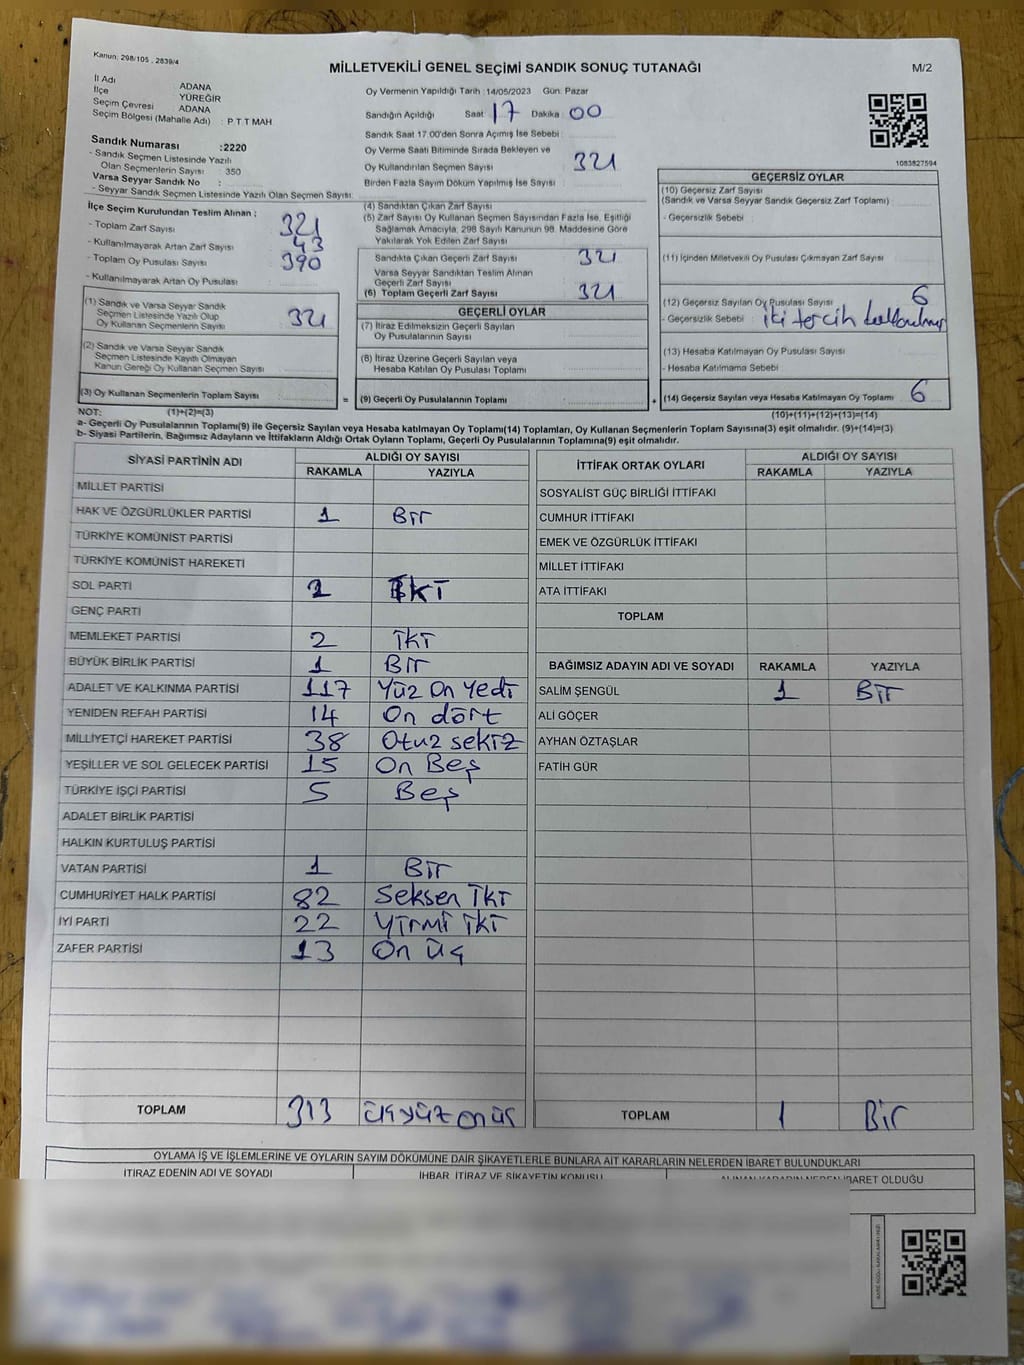 Kanun: 298/105 , 2839/4
MİLLETVEKİLİ GENEL SEÇİMİ SANDIK SONUÇ TUTANAĞI
M/2
İl Adı ADANA
İlçe YÜREĞİR
Seçim Çevresi ADANA
Seçim Bölgesi (Mahalle Adı) : P T T MAH
Sandık Numarası :2220
- Sandık Seçmen Listesinde Yazılı
Olan Seçmenlerin Sayısı : 350
Varsa Seyyar Sandık No :
- Seyyar Sandık Seçmen Listesinde Yazılı Olan Seçmen Sayısı:
Oy Vermenin Yapıldığı Tarih :14/05/2023 Gün: Pazar
Sandığın Açıldığı Saat: 17 Dakika: 00
Sandık Saat 17.00'den Sonra Açımış İse Sebebi:
Oy Verme Saati Bitiminde Sırada Bekleyen ve
Oy Kullandırılan Seçmen Sayısı : 321
Birden Fazla Sayım Döküm Yapılmış İse Sayısı :
1083827594
İlçe Seçim Kurulundan Teslim Alınan ;
- Toplam Zarf Sayısı : 321
- Kullanılmayarak Artan Zarf Sayısı : 43
- Toplam Oy Pusulası Sayısı : 390
- Kullanılmayarak Artan Oy Pusulası :
(1) Sandık ve Varsa Seyyar Sandık
Seçmen Listesinde Yazılı Olup
Oy Kullanan Seçmenlerin Sayısı : 321
(2) Sandık ve Varsa Seyyar Sandık
Seçmen Listesinde Kayıtlı Olmayan
Kanun Gereği Oy Kullanan Seçmen Sayısı :
(3) Oy Kullanan Seçmenlerin Toplam Sayısı :
(4) Sandıktan Çıkan Zarf Sayısı :
(5) Zarf Sayısı Oy Kullanan Seçmen Sayısından Fazla İse, Eşitliği
Sağlamak Amacıyla, 298 Sayılı Kanunun 98. Maddesine Göre
Yakılarak Yok Edilen Zarf Sayısı :
Sandıkta Çıkan Geçerli Zarf Sayısı : 321
Varsa Seyyar Sandıktan Teslim Alınan
Geçerli Zarf Sayısı :
(6) Toplam Geçerli Zarf Sayısı : 321
GEÇERLİ OYLAR
(7) İtiraz Edilmeksizin Geçerli Sayılan
Oy Pusulalarının Sayısı :
(8) İtiraz Üzerine Geçerli Sayılan veya
Hesaba Katılan Oy Pusulası Toplamı :
= (9) Geçerli Oy Pusulalarının Toplamı :
GEÇERSİZ OYLAR
(10) Geçersiz Zarf Sayısı
(Sandık ve Varsa Seyyar Sandık Geçersiz Zarf Toplamı) :
- Geçersizlik Sebebi :
(11) İçinden Milletvekili Oy Pusulası Çıkmayan Zarf Sayısı :
(12) Geçersiz Sayılan Oy Pusulası Sayısı : 6
- Geçersizlik Sebebi : iki tercih
(13) Hesaba Katılmayan Oy Pusulası Sayısı :
- Hesaba Katılmama Sebebi :
+ (14) Geçersiz Sayılan veya Hesaba Katılmayan Oy Toplamı : 6
NOT: (1)+(2)=(3) (10)+(11)+(12)+(13)=(14)
a- Geçerli Oy Pusulalarının Toplamı(9) ile Geçersiz Sayılan veya Hesaba katılmayan Oy Toplamı(14) Toplamları, Oy Kullanan Seçmenlerin Toplam Sayısına(3) eşit olmalıdır. (9)+(14)=(3)
b- Siyasi Partilerin, Bağımsız Adayların ve İttifakların Aldığı Ortak Oyların Toplamı, Geçerli Oy Pusulalarının Toplamına(9) eşit olmalıdır.
SİYASİ PARTİNİN ADI ALDIĞI OY SAYISI
RAKAMLA YAZIYLA
MİLLET PARTİSİ
HAK VE ÖZGÜRLÜKLER PARTİSİ 1 Bir
TÜRKİYE KOMÜNİST PARTİSİ
TÜRKİYE KOMÜNİST HAREKETİ
SOL PARTİ 2 İKİ
GENÇ PARTİ
MEMLEKET PARTİSİ 2 İKİ
BÜYÜK BİRLİK PARTİSİ 1 Bir
ADALET VE KALKINMA PARTİSİ 117 Yüz On Yedi
YENİDEN REFAH PARTİSİ 14 On dört
MİLLİYETÇİ HAREKET PARTİSİ 38 Otuz sekiz
YEŞİLLER VE SOL GELECEK PARTİSİ 15 On Beş
TÜRKİYE İŞÇİ PARTİSİ 5 Beş
ADALET BİRLİK PARTİSİ
HALKIN KURTULUŞ PARTİSİ
VATAN PARTİSİ 1 Bir
CUMHURİYET HALK PARTİSİ 82 Seksen İki
İYİ PARTİ 22 Yirmi İki
ZAFER PARTİSİ 13 On Üç
TOPLAM 313 üçyüz onüç
İTTİFAK ORTAK OYLARI ALDIĞI OY SAYISI
RAKAMLA YAZIYLA
SOSYALİST GÜÇ BİRLİĞİ İTTİFAKI
CUMHUR İTTİFAKI
EMEK VE ÖZGÜRLÜK İTTİFAKI
MİLLET İTTİFAKI
ATA İTTİFAKI
TOPLAM
BAĞIMSIZ ADAYIN ADI VE SOYADI RAKAMLA YAZIYLA
SALİM ŞENGÜL 1 Bir
ALİ GÖÇER
AYHAN ÖZTAŞLAR
FATİH GÜR
TOPLAM 1 Bir
OYLAMA İŞ VE İŞLEMLERİNE VE OYLARIN SAYIM DÖKÜMÜNE DAİR ŞİKAYETLERLE BUNLARA AİT KARARLARIN NELERDEN İBARET BULUNDUKLARI
İTİRAZ EDENİN ADI VE SOYADI İHBAR, İTİRAZ VE ŞİKAYETİN KONUSU ALINAN KARARIN NEDEN İBARET OLDUĞU